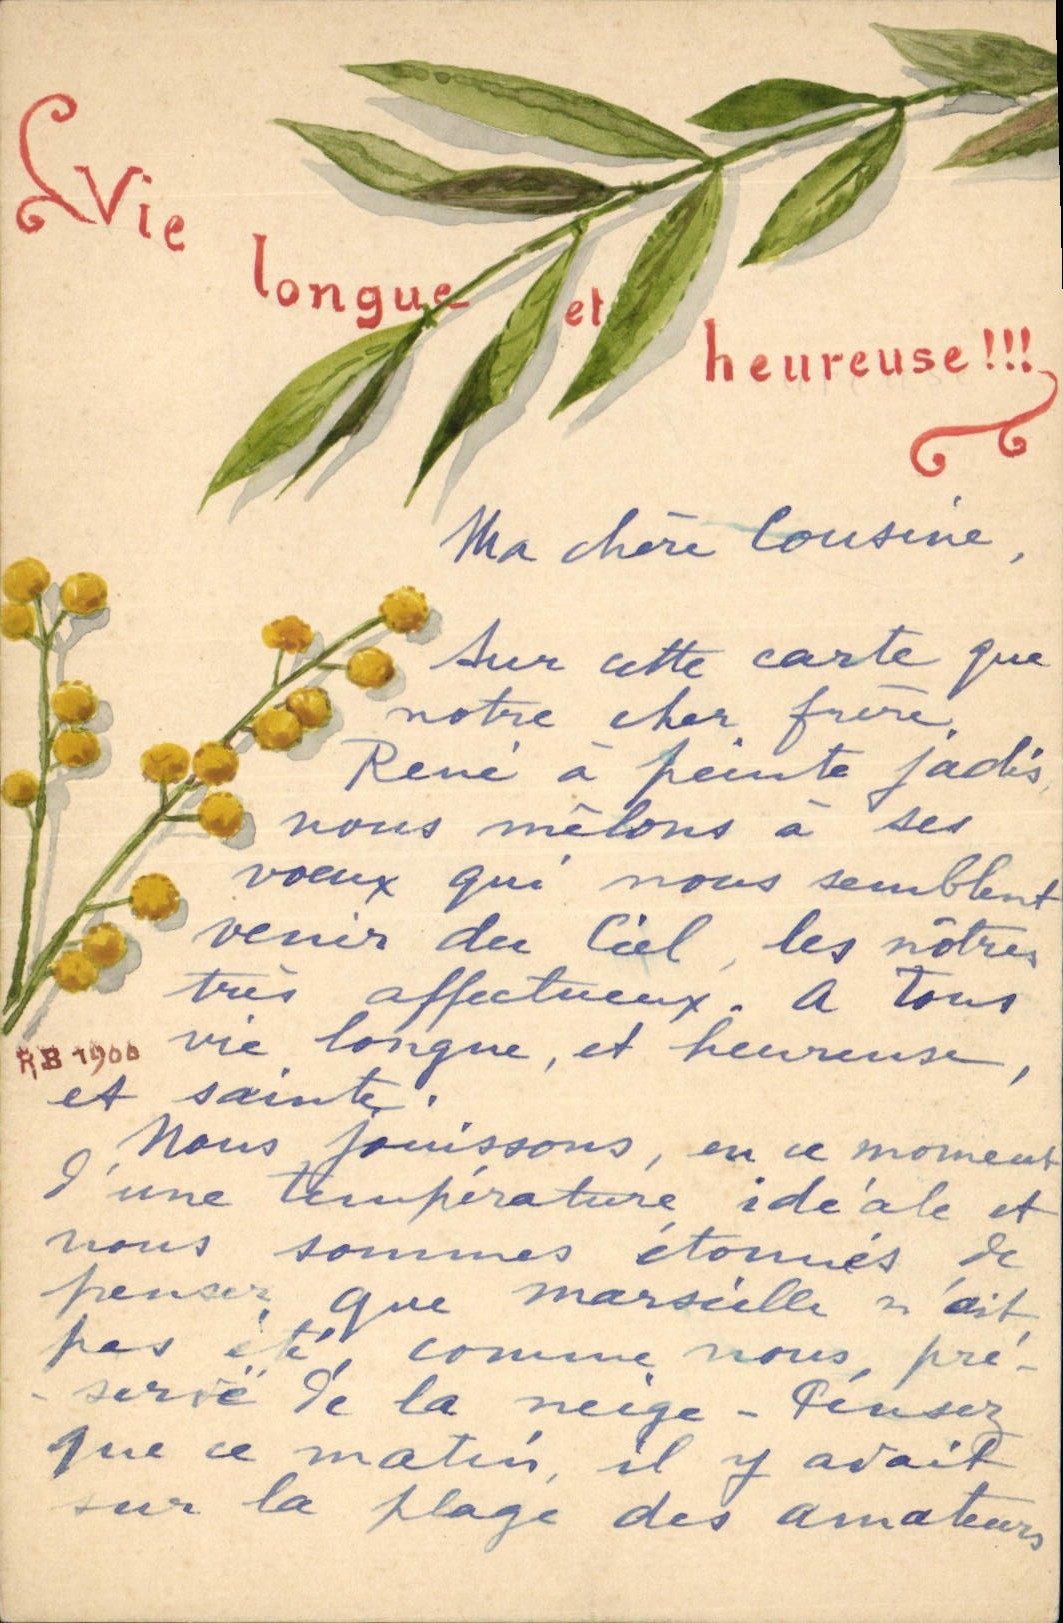 Vie
longue et
heureuse!!!
Ma chère Cousine,
Sur cette carte que
notre cher frère,
René a peinte jadis,
nous mêlons à ses
voeux qui nous semblent
venir du Ciel, les nôtres
très affectueux. A tous
vie longue, et heureuse,
et sainte.
Nous jouissons, en ce moment
d'une température idéale et
nous sommes étonnés de
penser que marseille n'ait
pas été, comme nous, pré-
-servé de la neige - Pensez
que ce matin, il y avait
sur la plage des amateurs
RB 1900